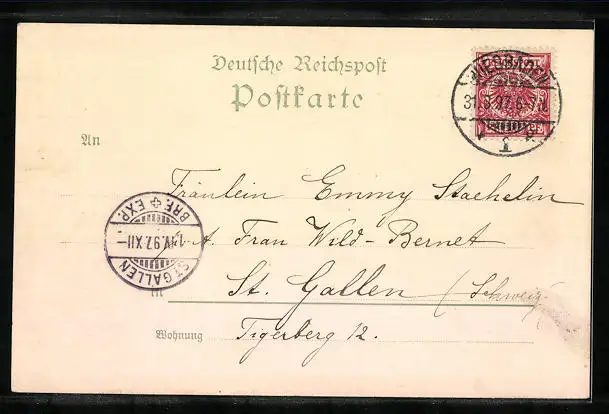 Deutsche Reichspost
Postkarte
WIESBADEN
31.3.97.6-7N.
1
An
Fräulein Emmy Staehelin
Frau Wild-Bernet
St. Gallen (Schweiz
in
Wohnung
Tigerberg 12.
ST. GALLEN
1.IV.97.XII-
BRF. EXP.